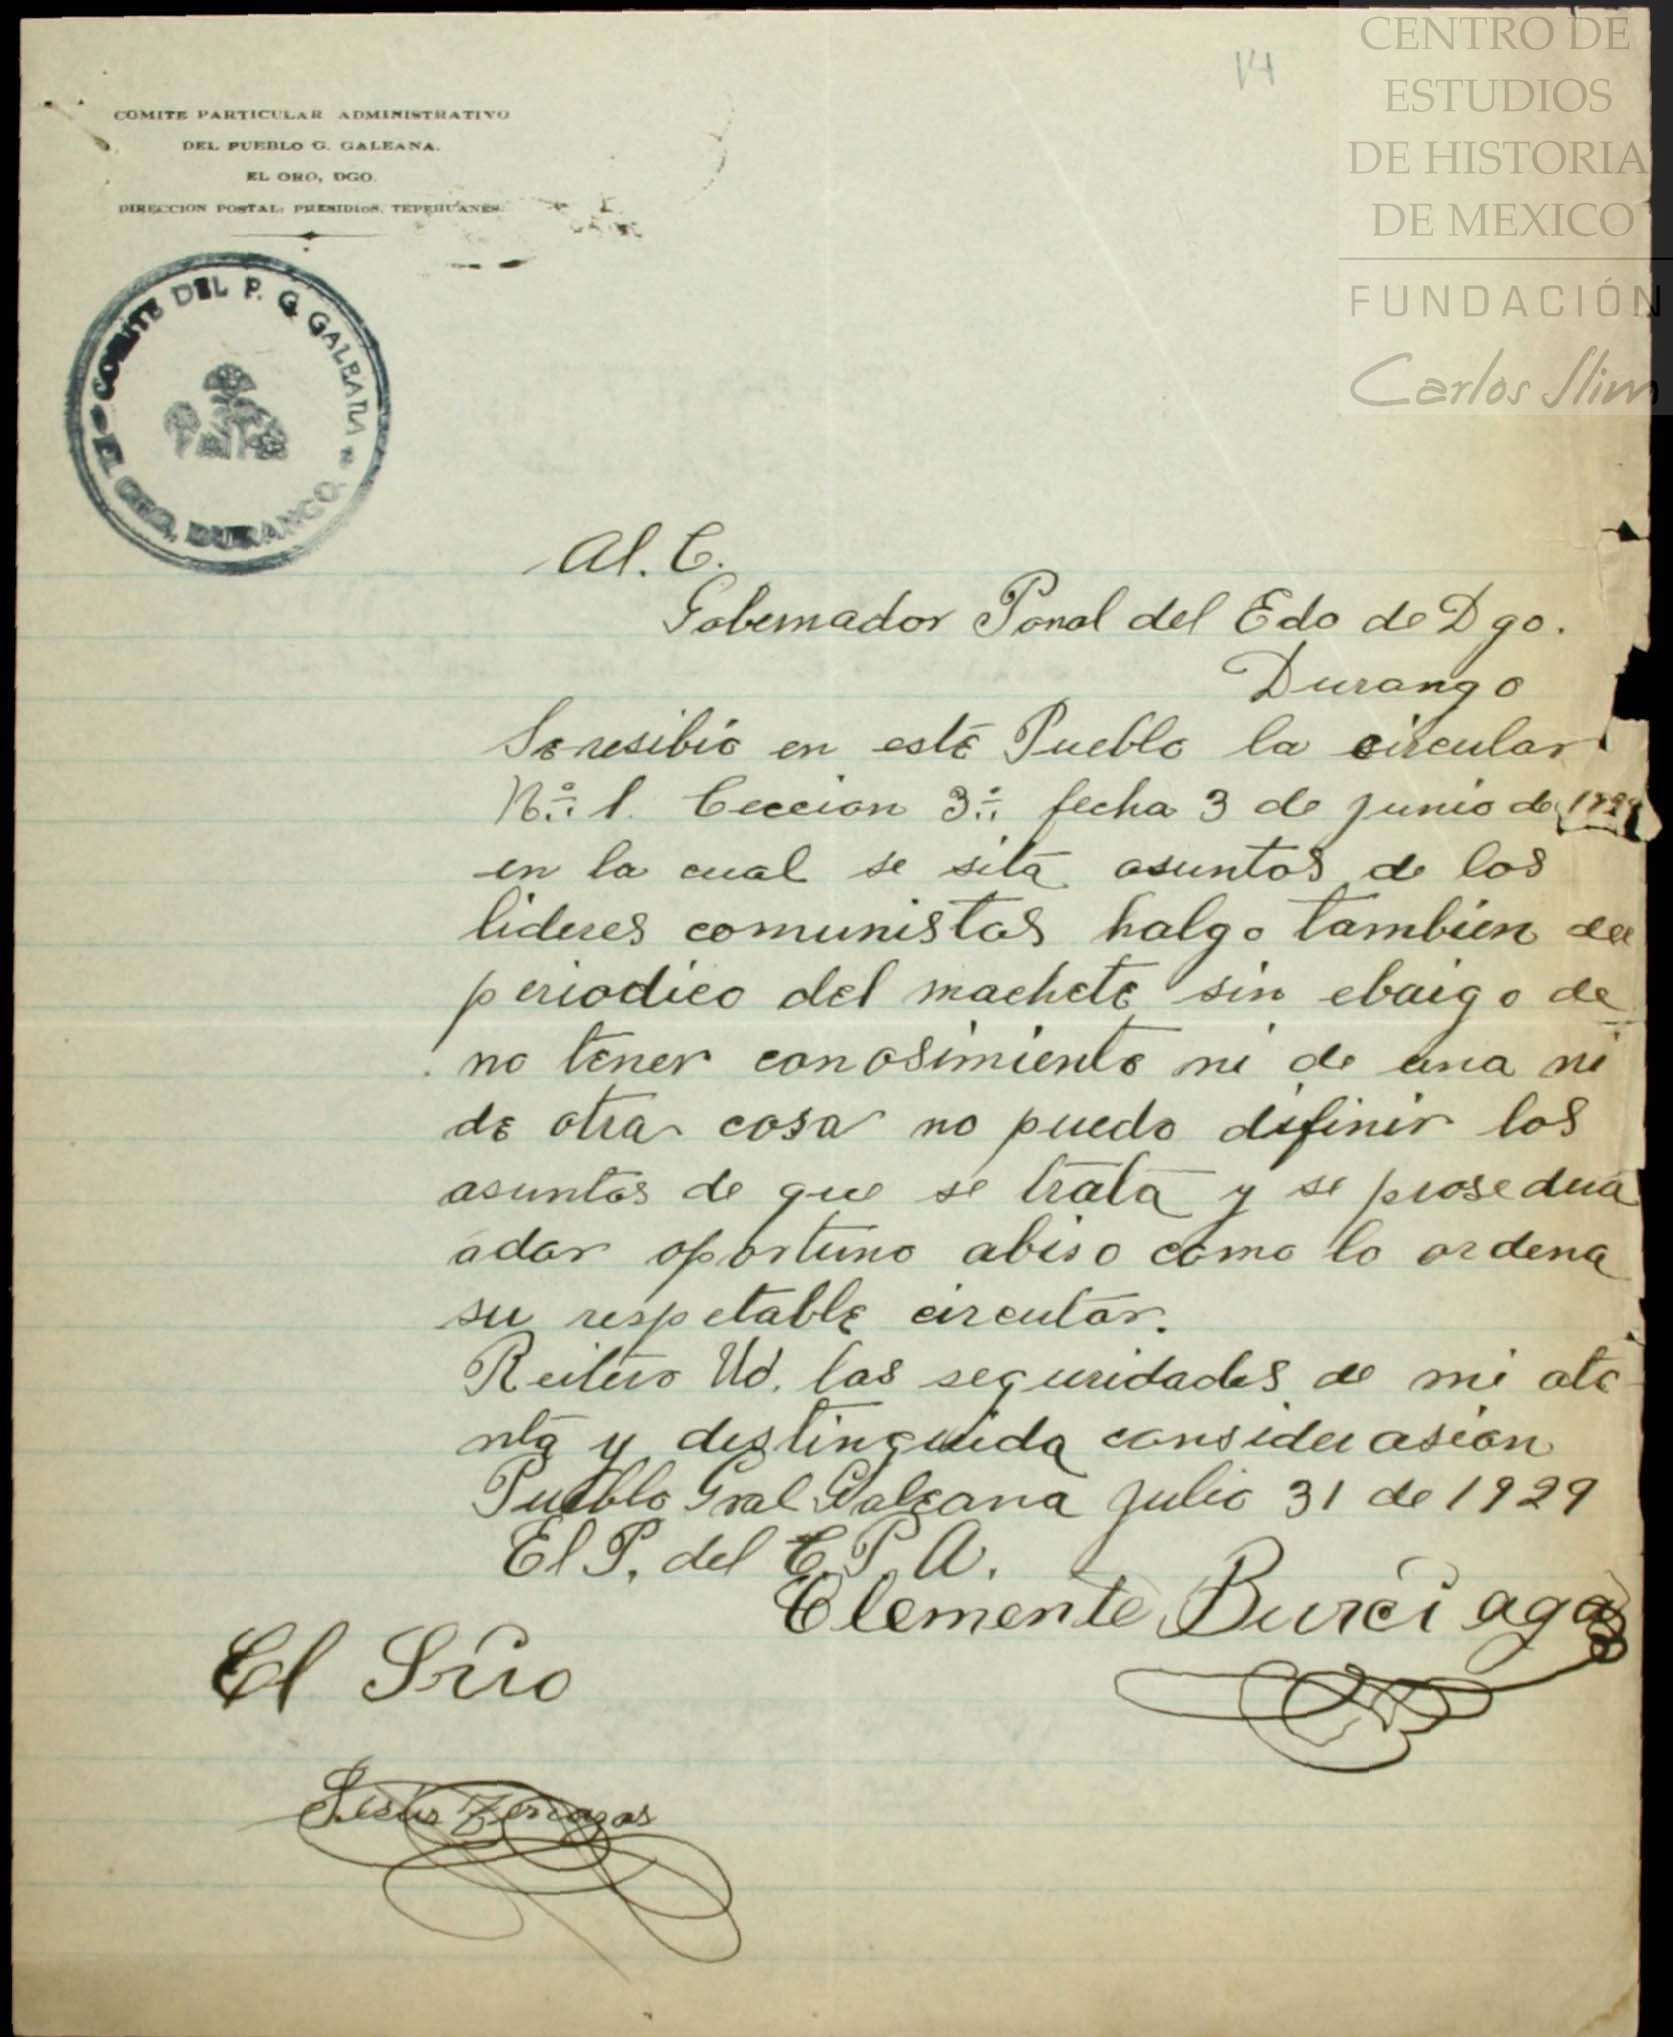 14
CENTRO DE
ESTUDIOS
DE HISTORIA
DE MEXICO
FUNDACIÓN
Carlos Slim
COMITE PARTICULAR ADMINISTRATIVO
DEL PUEBLO G. GALEANA.
EL ORO, DGO.
DIRECCION POSTAL: PRESIDIOS, TEPEHUANES.
COMITE DEL P. G. GALEANA
EL ORO, DURANGO.
Al. C.
Gobernador Ponal del Edo de Dgo.
Durango
Se resibio en este Pueblo la circular
No. 1. Ceccion 3a. fecha 3 de junio de 1929
en la cual se sita asuntos de los
lideres comunistas halgo tambien del
periodico del machete sin ebargo de
no tener conosimiento ni de una ni
de otra cosa no puedo difinir los
asuntos de que se trata y se prosedera
adar oportuno abiso como lo ordena
su respetable circular.
Reitero Ud. las seguridades de mi ate
nta y distinguida considerasion
Pueblo Gral Galeana Julio 31 de 1929
El P. del C. P. A.
Clemente Burciaga
El Srio
Jesús Terrazas